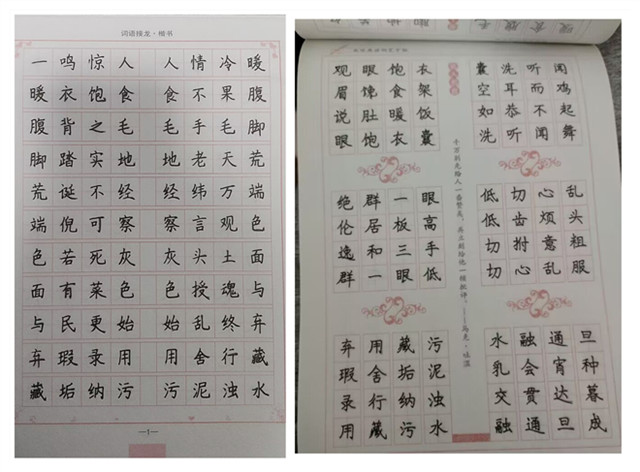 词语接龙·楷书
一鸣惊人 人情冷暖
暖衣饱食 食不果腹
腹背之毛 毛手毛脚
脚踏实地 地老天荒
荒诞不经 经纬万端
端倪可察 察言观色
色若死灰 灰头土面
面有菜色 色授魂与
与民更始 始乱终弃
弃瑕录用 用舍行藏
藏垢纳污 污泥浊水
—1—
观眉说眼
眼馋肚饱
饱食暖衣
衣架饭囊
囊空如洗
洗耳恭听
听而不闻
闻鸡起舞
绝伦逸群
群居和一
一板三眼
眼高手低
低低切切
切齿拊心
心烦意乱
乱头粗服
弃瑕录用
用舍行藏
藏垢纳污
污泥浊水
水乳交融
融会贯通
通宵达旦
旦种暮成
——马克·吐温